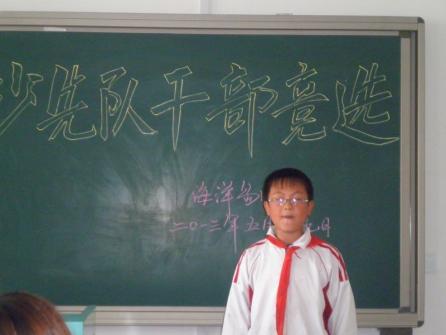 少先队干部竞选
海洋
二〇一三年五月 日